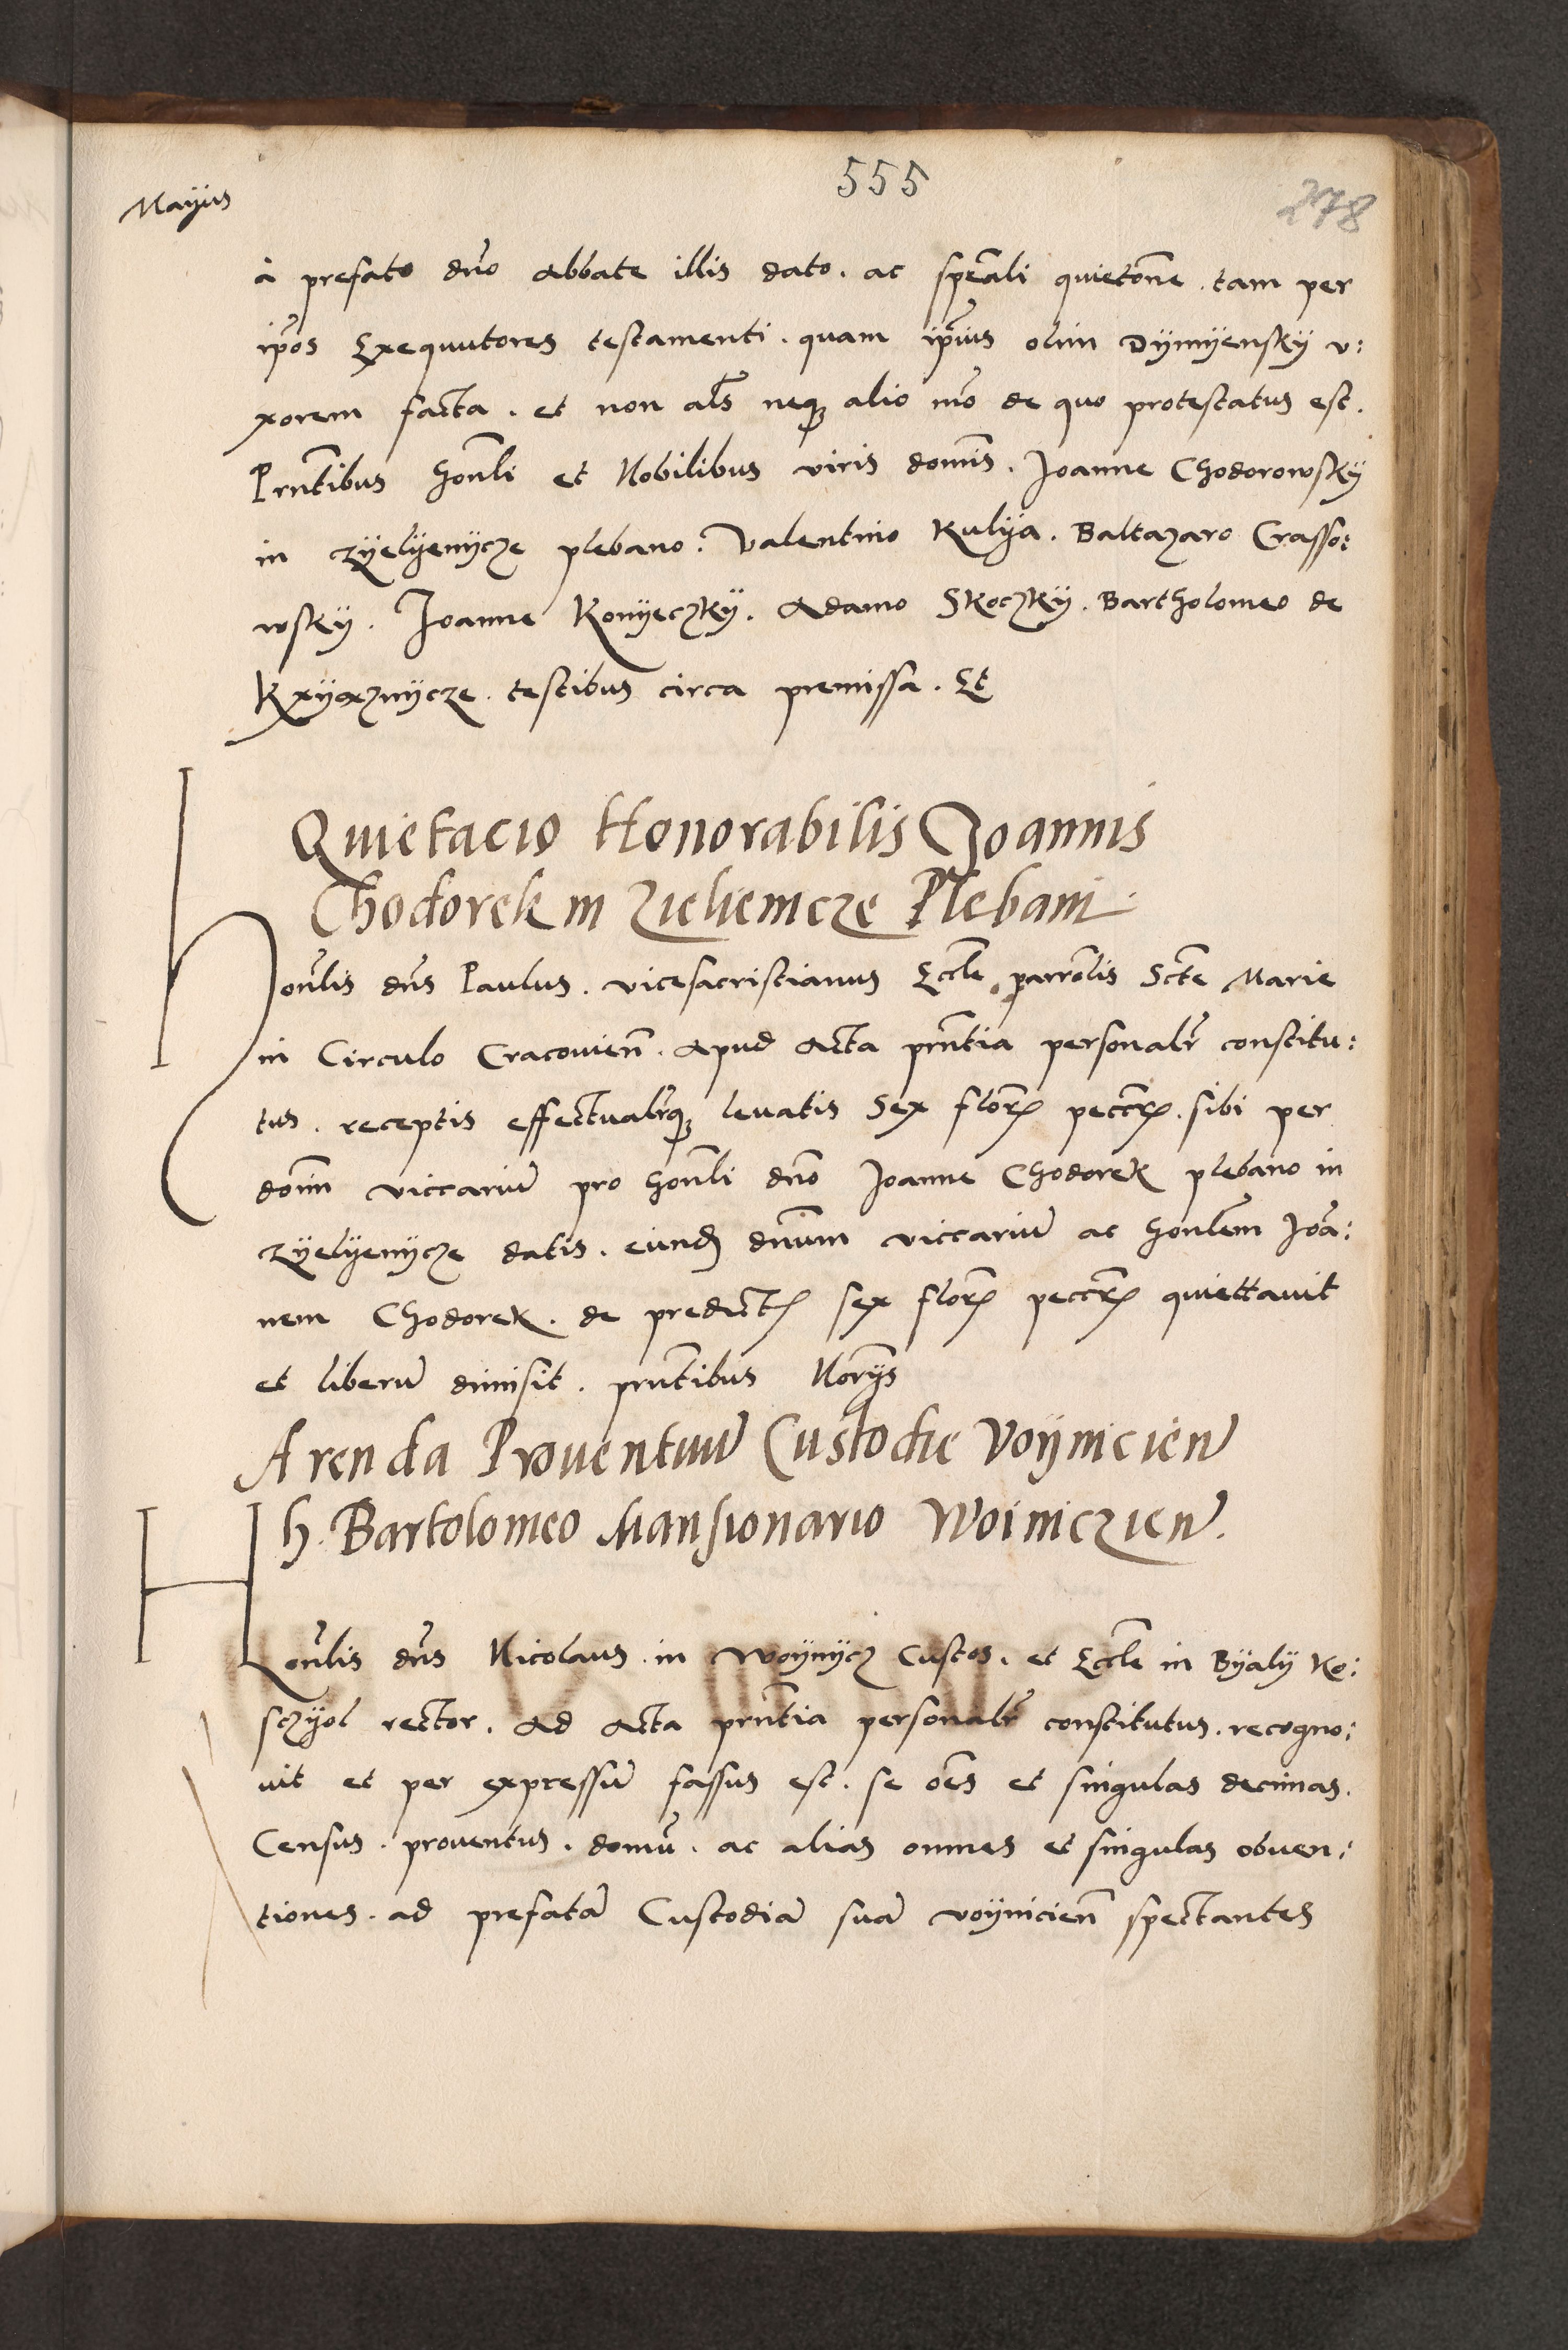 555
278
Mayus
à prefato dno abbate illis dato . ac speali quietone . tam per
ipos Exequutores testamenti . quam ipius olim Dymyensky v:
xorem facta . et non als neq alio mo de quo protestatus est .
Prntibus honli et Nobilibus viris domis . Joanne Chodorowsky
in Zyelyenycze plebano . Valentino Kulya . Baltazaro Crasso:
wsky . Joanne Konyeczky . Adamo Skoczky . Bartholomeo de
testibus circa premissa . Et
Quietacio Honorabilis Joannis
Chodorek in Zielienicze Plebani
Honlis dns Paulus . vicesacristianus Eccle parrolis Scte Marie
in Circulo Cracovien . apud acta prntia personalr constitu:
tus . receptis effectualrq levatis Sex flor peccr . sibi per
doim viccariu pro honli dno Joanne Chodorek plebano in
Zyelyenycze datis . eund dnum viccariu ac honlem Joa:
nem Chodorek . de predict sex flor peccr quiettavit
et liberu dimisit . prntibus Norys
Arenda Proventuu Custodie Voynicien
h. Bartolomeo Mansionario Woiniczien .
Honlis dns Nicolaus . in Woynycz Custos . et Eccle in Byaly Ko:
sczyol rector . ad acta prntia personalr constitutus . recogno:
vit et per expressu fassus est . se oes et singulas decimas .
Census . proventus . domu . ac alias omnes et singulas obven:
tiones . ad prefata Custodia sua voynicien spectantes